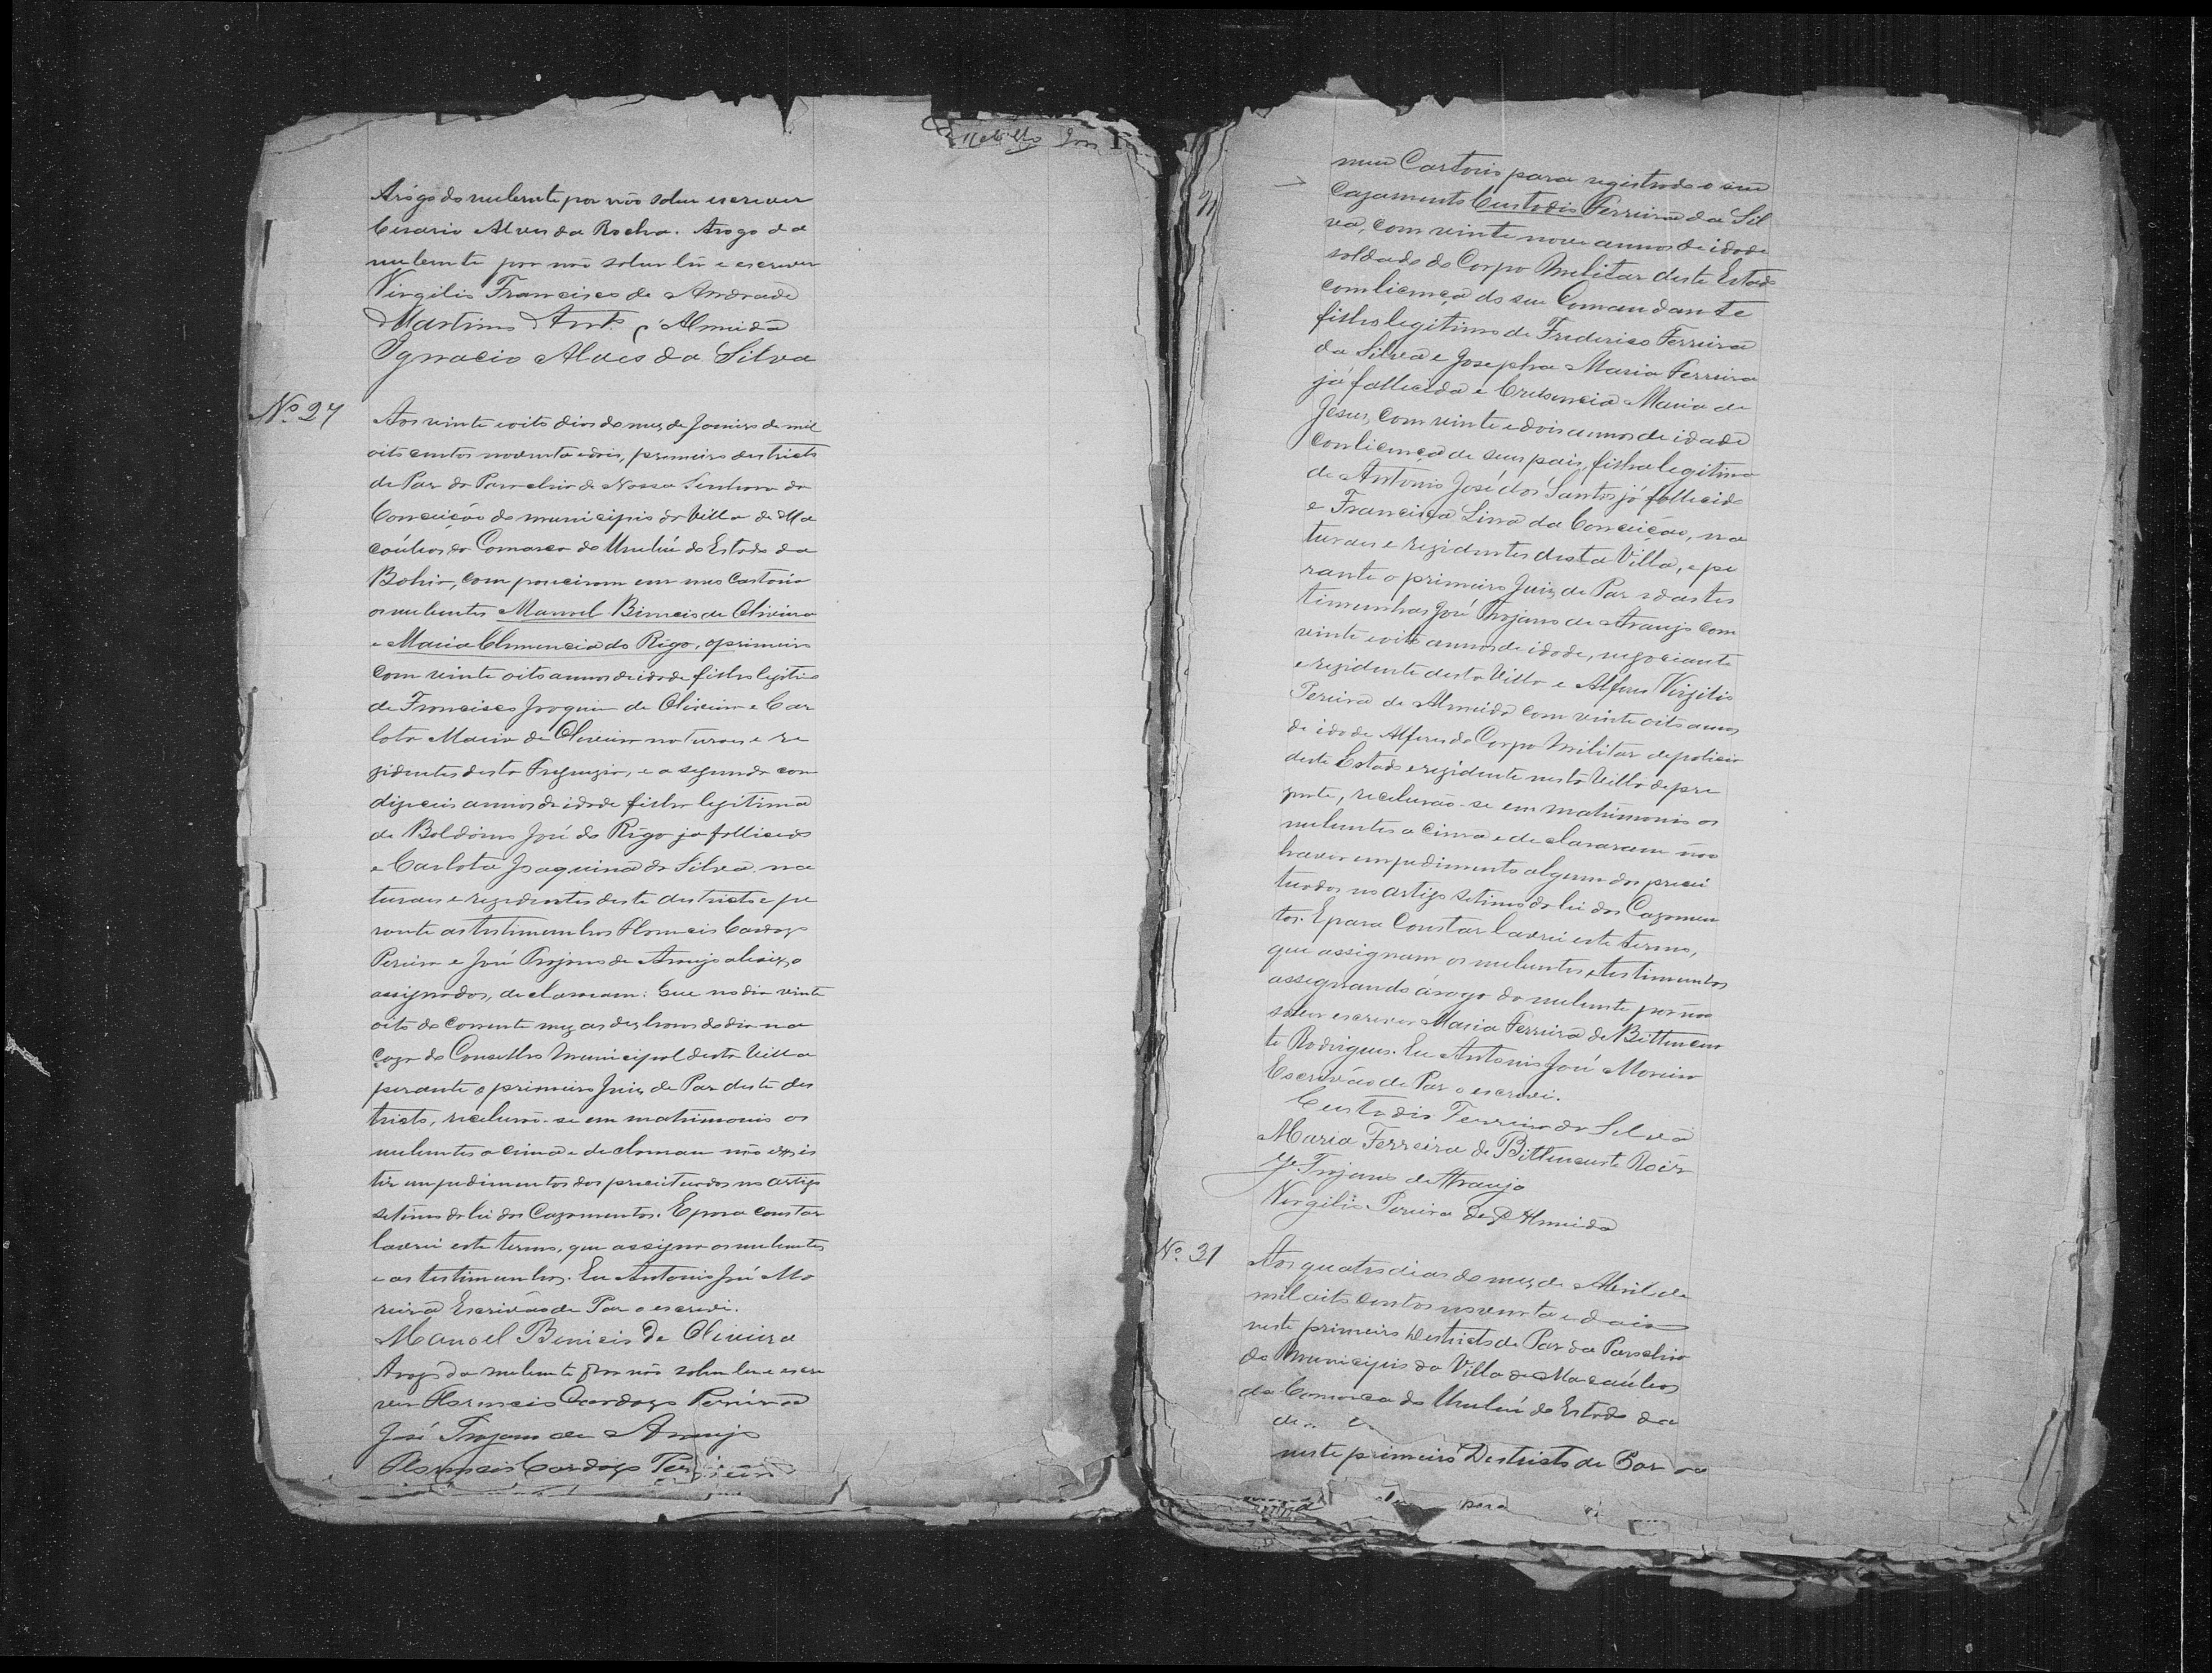 Arôgo do nubente por não saber escrever
Cesario Alves da Rocha. Arogo da
nubente por não saber lêr e escrever
Virgilio Francisco de Andrade
Martins Antº d'Almeida
Ignacio Alves da Silva
Nº 27
Aos vinte e oito dias do mez de Janeiro de mil
oito centos noventa e dois, primeiro destricto
de Paz da Parochia de Nossa Senhora da
Conceição do municipio da Villa de Ma
caúbas da Comarca do Urubú do Estado da
Bahia, compareceram em meo Cartorio
os nubentes Manoel Binicio de Oliveira
e Maria Clemencia do Rêgo, o primeiro
com vinte oito annos de idade filho legitimo
de Francisco Joaquim de Oliveira e Car
lota Maria de Oliveira naturaes e re
zidentes desta Freguezia, e a segunda com
dizeceis annos de idade filha legitima
de Boldoino José do Rêgo já fallecido
e Carlota Joaquina da Silva, na
turaes e rezidentes deste destricto e pe
rante as testimunhas Florencio Cardozo
Pereira e José Trojano de Araujo abaixo
assignados, declararam: Que no dia vinte
oito do corrente mez as dez horas do dia na
caza do Conselho Municipal desta Villa
perante o primeiro Juiz de Paz deste des
tricto, receberão-se em matrimonio os
nubentes a cima e declararam não exzis
tir impedimentos dos preceituados no artigo
setimo da lei dos Cazamentos. E para constar
lavrei este termo, que assigno os nubentes
e as testimunhas. Eu Antonio José Mo
reira Escrivão de Paz o escrevi.
Manoel Binicio de Oliveira
Arogo da nubente por não saber ler e escre
ver Florencio Cardozo Pereira
José Trojano de Araujo
Florencio Cardozo Pereira
meu Cartorio para registrado o seu
Cazamento Custodio Ferreira da Sil
va, com vinte nove annos de idade
soldado do Corpo Militar deste Estado
com licença do seu Comandante
filho legitimo de Frederico Ferreira
da Silva e Josepha Maria Ferreira
já fallecida e Cresencia Maria de
Jesus, com vinte e dois annos de idade
com licença de seus pais, filha legitima
de Antonio José dos Santos já fallecido
e Francisca Lina da Conceição, na
turaes e rezidentes desta Villa, e pe
rante o primeiro Juiz de Paz e das tes
timunhas José Trojano de Araujo com
vinte e oito annos de idade, negociante
e rezidente desta Villa e Alferes Virgilio
Pereira de Almeida com vinte oito annos
de idade Alferes do Corpo Militar de policia
deste Estado e rezidente nesta Villa de pre
zente, receberão-se em matrimonio os
nubentes a cima e declararam não
haver empedimento algum dos precei
tuados no artigo setimo da lei dos Cazamen
tos. E para Constar lavrei este termo,
que assignam os nubentes, e testimunhas
assegnando árogo da nubente por não
saber escrever Maria Ferreira de Bittencour
te Rodrigues. Eu Antonio José Moreira
Escrivão de Paz o escrevi.
Custodio Ferreira da Silva
Maria Ferreira de Bittencourte Roiz
Je. Trojano de Araujo
Virgilio Pereira de Almeida
Nº 31
Aos quatro dias do mez de Abril de
mil oito centos noventa e dois
neste primeiro Destricto de Paz da Parochia
do Municipio da Villa de Macaúbas
da Comarca do Urubú do Estado da
neste primeiro Destricto de Paz da
para